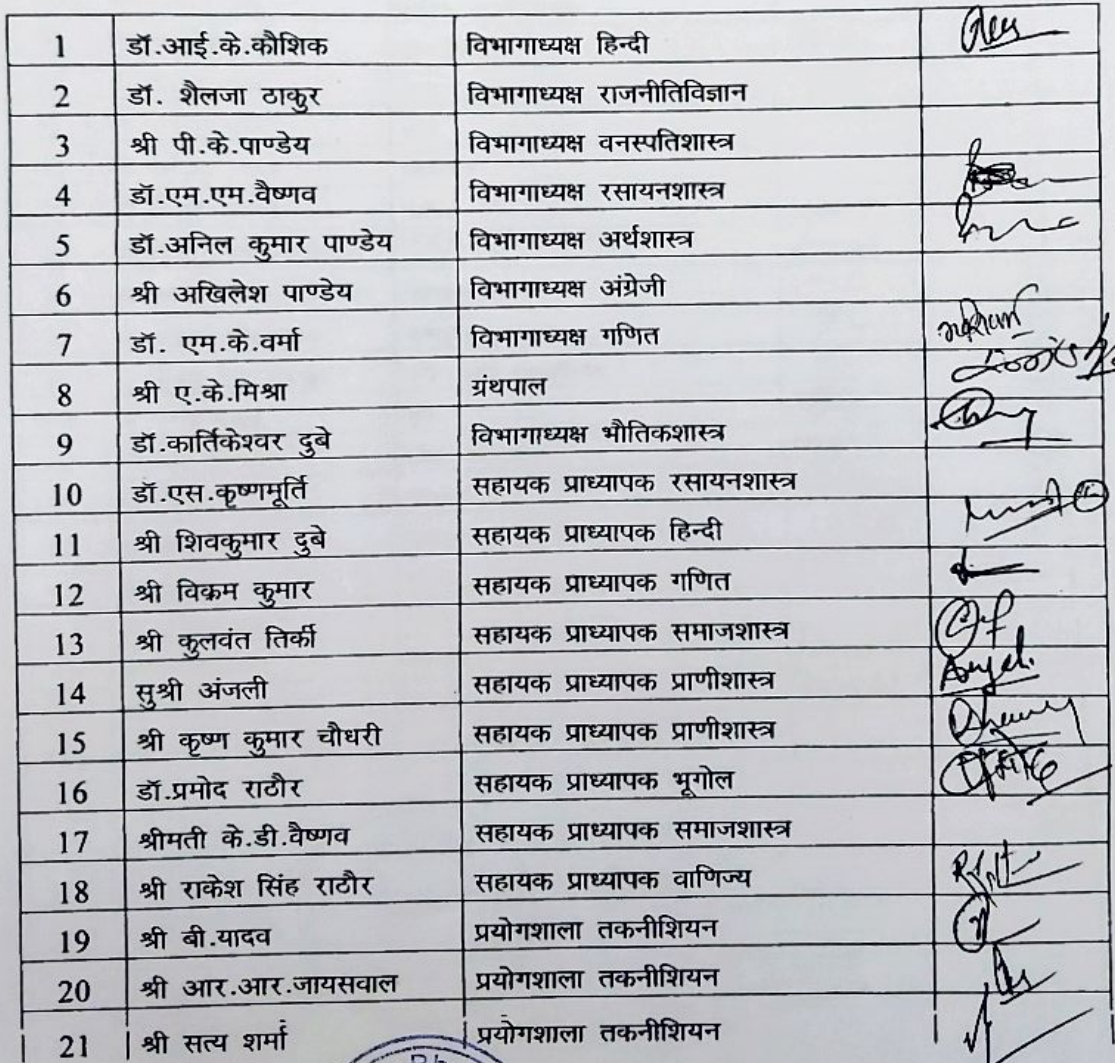 1 डॉ.आई.के.कौशिक विभागाध्यक्ष हिन्दी
2 डॉ. शैलजा ठाकुर विभागाध्यक्ष राजनीतिविज्ञान
3 श्री पी.के.पाण्डेय विभागाध्यक्ष वनस्पतिशास्त्र
4 डॉ.एम.एम.वैष्णव विभागाध्यक्ष रसायनशास्त्र
5 डॉ.अनिल कुमार पाण्डेय विभागाध्यक्ष अर्थशास्त्र
6 श्री अखिलेश पाण्डेय विभागाध्यक्ष अंग्रेजी
7 डॉ. एम.के.वर्मा विभागाध्यक्ष गणित
8 श्री ए.के.मिश्रा ग्रंथपाल
9 डॉ.कार्तिकेश्वर दुबे विभागाध्यक्ष भौतिकशास्त्र
10 डॉ.एस.कृष्णमूर्ति सहायक प्राध्यापक रसायनशास्त्र
11 श्री शिवकुमार दुबे सहायक प्राध्यापक हिन्दी
12 श्री विक्रम कुमार सहायक प्राध्यापक गणित
13 श्री कुलवंत तिर्की सहायक प्राध्यापक समाजशास्त्र
14 सुश्री अंजली सहायक प्राध्यापक प्राणीशास्त्र
15 श्री कृष्ण कुमार चौधरी सहायक प्राध्यापक प्राणीशास्त्र
16 डॉ.प्रमोद राठौर सहायक प्राध्यापक भूगोल
17 श्रीमती के.डी.वैष्णव सहायक प्राध्यापक समाजशास्त्र
18 श्री राकेश सिंह राठौर सहायक प्राध्यापक वाणिज्य
19 श्री बी.यादव प्रयोगशाला तकनीशियन
20 श्री आर.आर.जायसवाल प्रयोगशाला तकनीशियन
21 श्री सत्य शर्मा प्रयोगशाला तकनीशियन